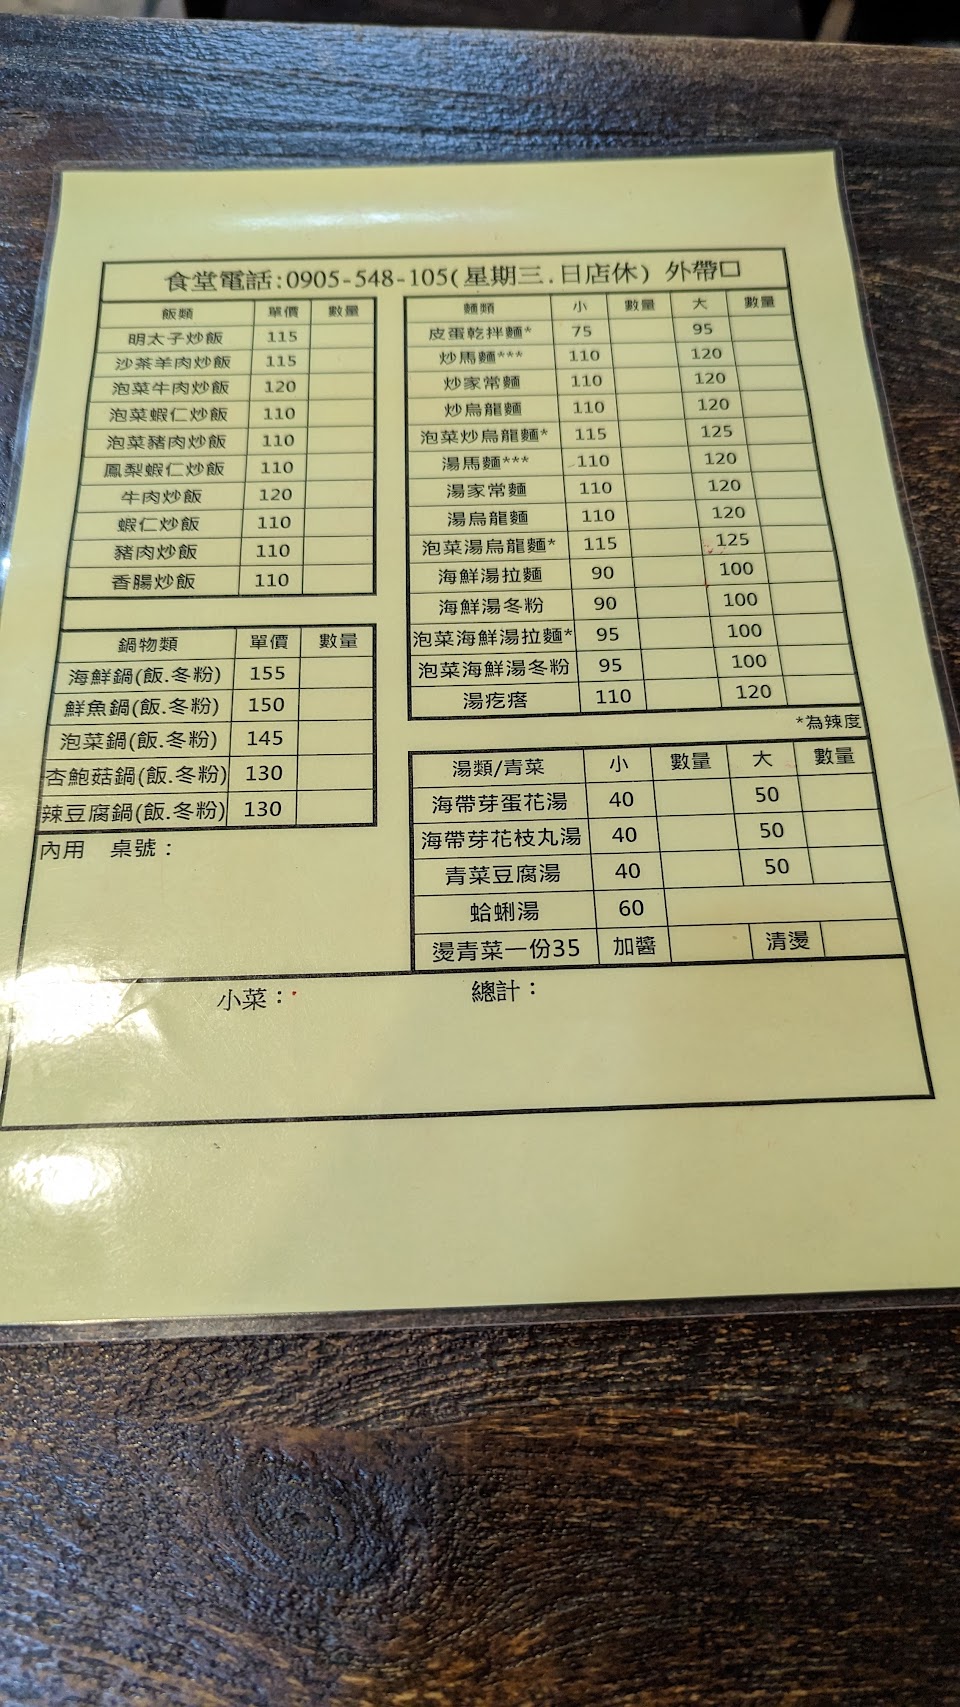 食堂電話:0905-548-105(星期三.日店休) 外帶口
飯類 單價 數量
明太子炒飯 115
沙茶羊肉炒飯 115
泡菜牛肉炒飯 120
泡菜蝦仁炒飯 110
泡菜豬肉炒飯 110
鳳梨蝦仁炒飯 110
牛肉炒飯 120
蝦仁炒飯 110
豬肉炒飯 110
香腸炒飯 110
鍋物類 單價 數量
海鮮鍋(飯.冬粉) 155
鮮魚鍋(飯.冬粉) 150
泡菜鍋(飯.冬粉) 145
杏鮑菇鍋(飯.冬粉) 130
辣豆腐鍋(飯.冬粉) 130
內用 桌號：
麵類 小 數量 大 數量
皮蛋乾拌麵* 75 95
炒馬麵*** 110 120
炒家常麵 110 120
炒烏龍麵 110 120
泡菜炒烏龍麵* 115 125
湯馬麵*** 110 120
湯家常麵 110 120
湯烏龍麵 110 120
泡菜湯烏龍麵* 115 125
海鮮湯拉麵 90 100
海鮮湯冬粉 90 100
泡菜海鮮湯拉麵* 95 100
泡菜海鮮湯冬粉 95 100
湯疙瘩 110 120
*為辣度
湯類/青菜 小 數量 大 數量
海帶芽蛋花湯 40 50
海帶芽花枝丸湯 40 50
青菜豆腐湯 40 50
蛤蜊湯 60
燙青菜一份35 加醬 清燙
小菜： 總計：